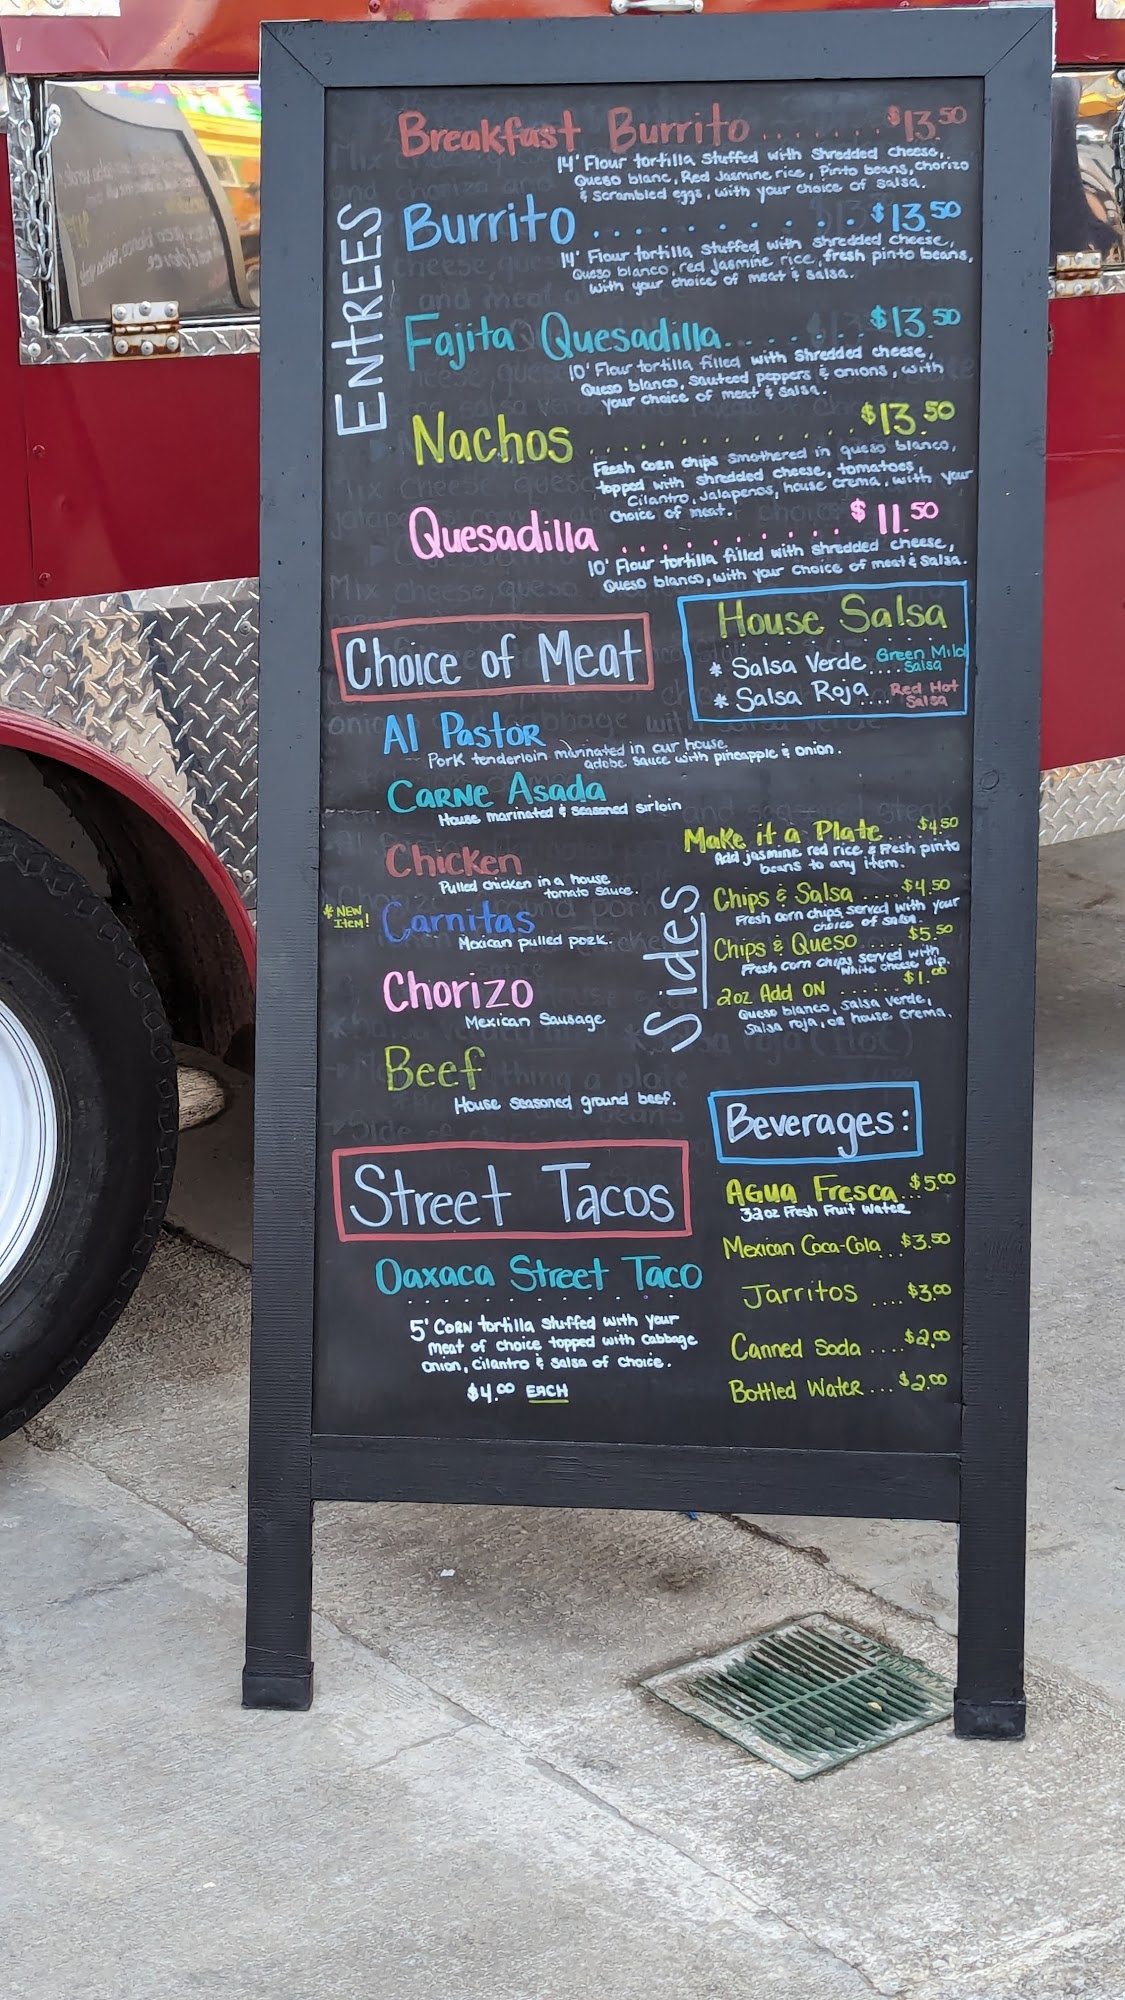 ENTREES
Breakfast Burrito ....... $13.50
14' Flour tortilla stuffed with shredded cheese,
Queso blanc, Red Jasmine rice, Pinto beans, chorizo
& scrambled eggs, with your choice of salsa.
Burrito ......... $13.50
14' Flour tortilla stuffed with shredded cheese,
Queso blanco, red jasmine rice, fresh pinto beans,
with your choice of meat & salsa.
Fajita Quesadilla....... $13.50
10' Flour tortilla filled with shredded cheese,
Queso blanco, sauteed peppers & onions, with
your choice of meat & salsa.
Nachos ............. $13.50
Fresh corn chips smothered in queso blanco,
topped with shredded cheese, tomatoes,
Cilantro, Jalapenos, house crema, with your
choice of meat.
Quesadilla .......... $11.50
10' Flour tortilla filled with shredded cheese,
Queso blanco, with your choice of meat & salsa.
Choice of Meat
Al Pastor
Pork tenderloin marinated in our house
adobe sauce with pineapple & onion.
Carne Asada
House marinated & seasoned sirloin
Chicken
Pulled chicken in a house
tomato sauce.
* NEW
Item!
Carnitas
Mexican pulled pork.
Chorizo
Mexican Sausage
Beef
House seasoned ground beef.
House Salsa
* Salsa Verde .... Green Mild
Salsa
* Salsa Roja .... Red Hot
Salsa
Sides
Make it a Plate... $4.50
Add jasmine red rice & fresh pinto
beans to any item.
Chips & Salsa .... $4.50
Fresh corn chips served with your
choice of salsa.
Chips & Queso .... $5.50
Fresh corn chips served with
white cheese dip.
2oz Add ON ...... $1.00
Queso blanco, salsa verde,
Salsa roja, or house crema.
Street Tacos
Oaxaca Street Taco
5' Corn tortilla stuffed with your
meat of choice topped with cabbage
onion, cilantro & salsa of choice.
$4.00 EACH
Beverages:
Agua Fresca...$5.00
32oz Fresh Fruit Water
Mexican Coca-Cola...$3.50
Jarritos ....$3.00
Canned Soda ....$2.00
Bottled Water...$2.00